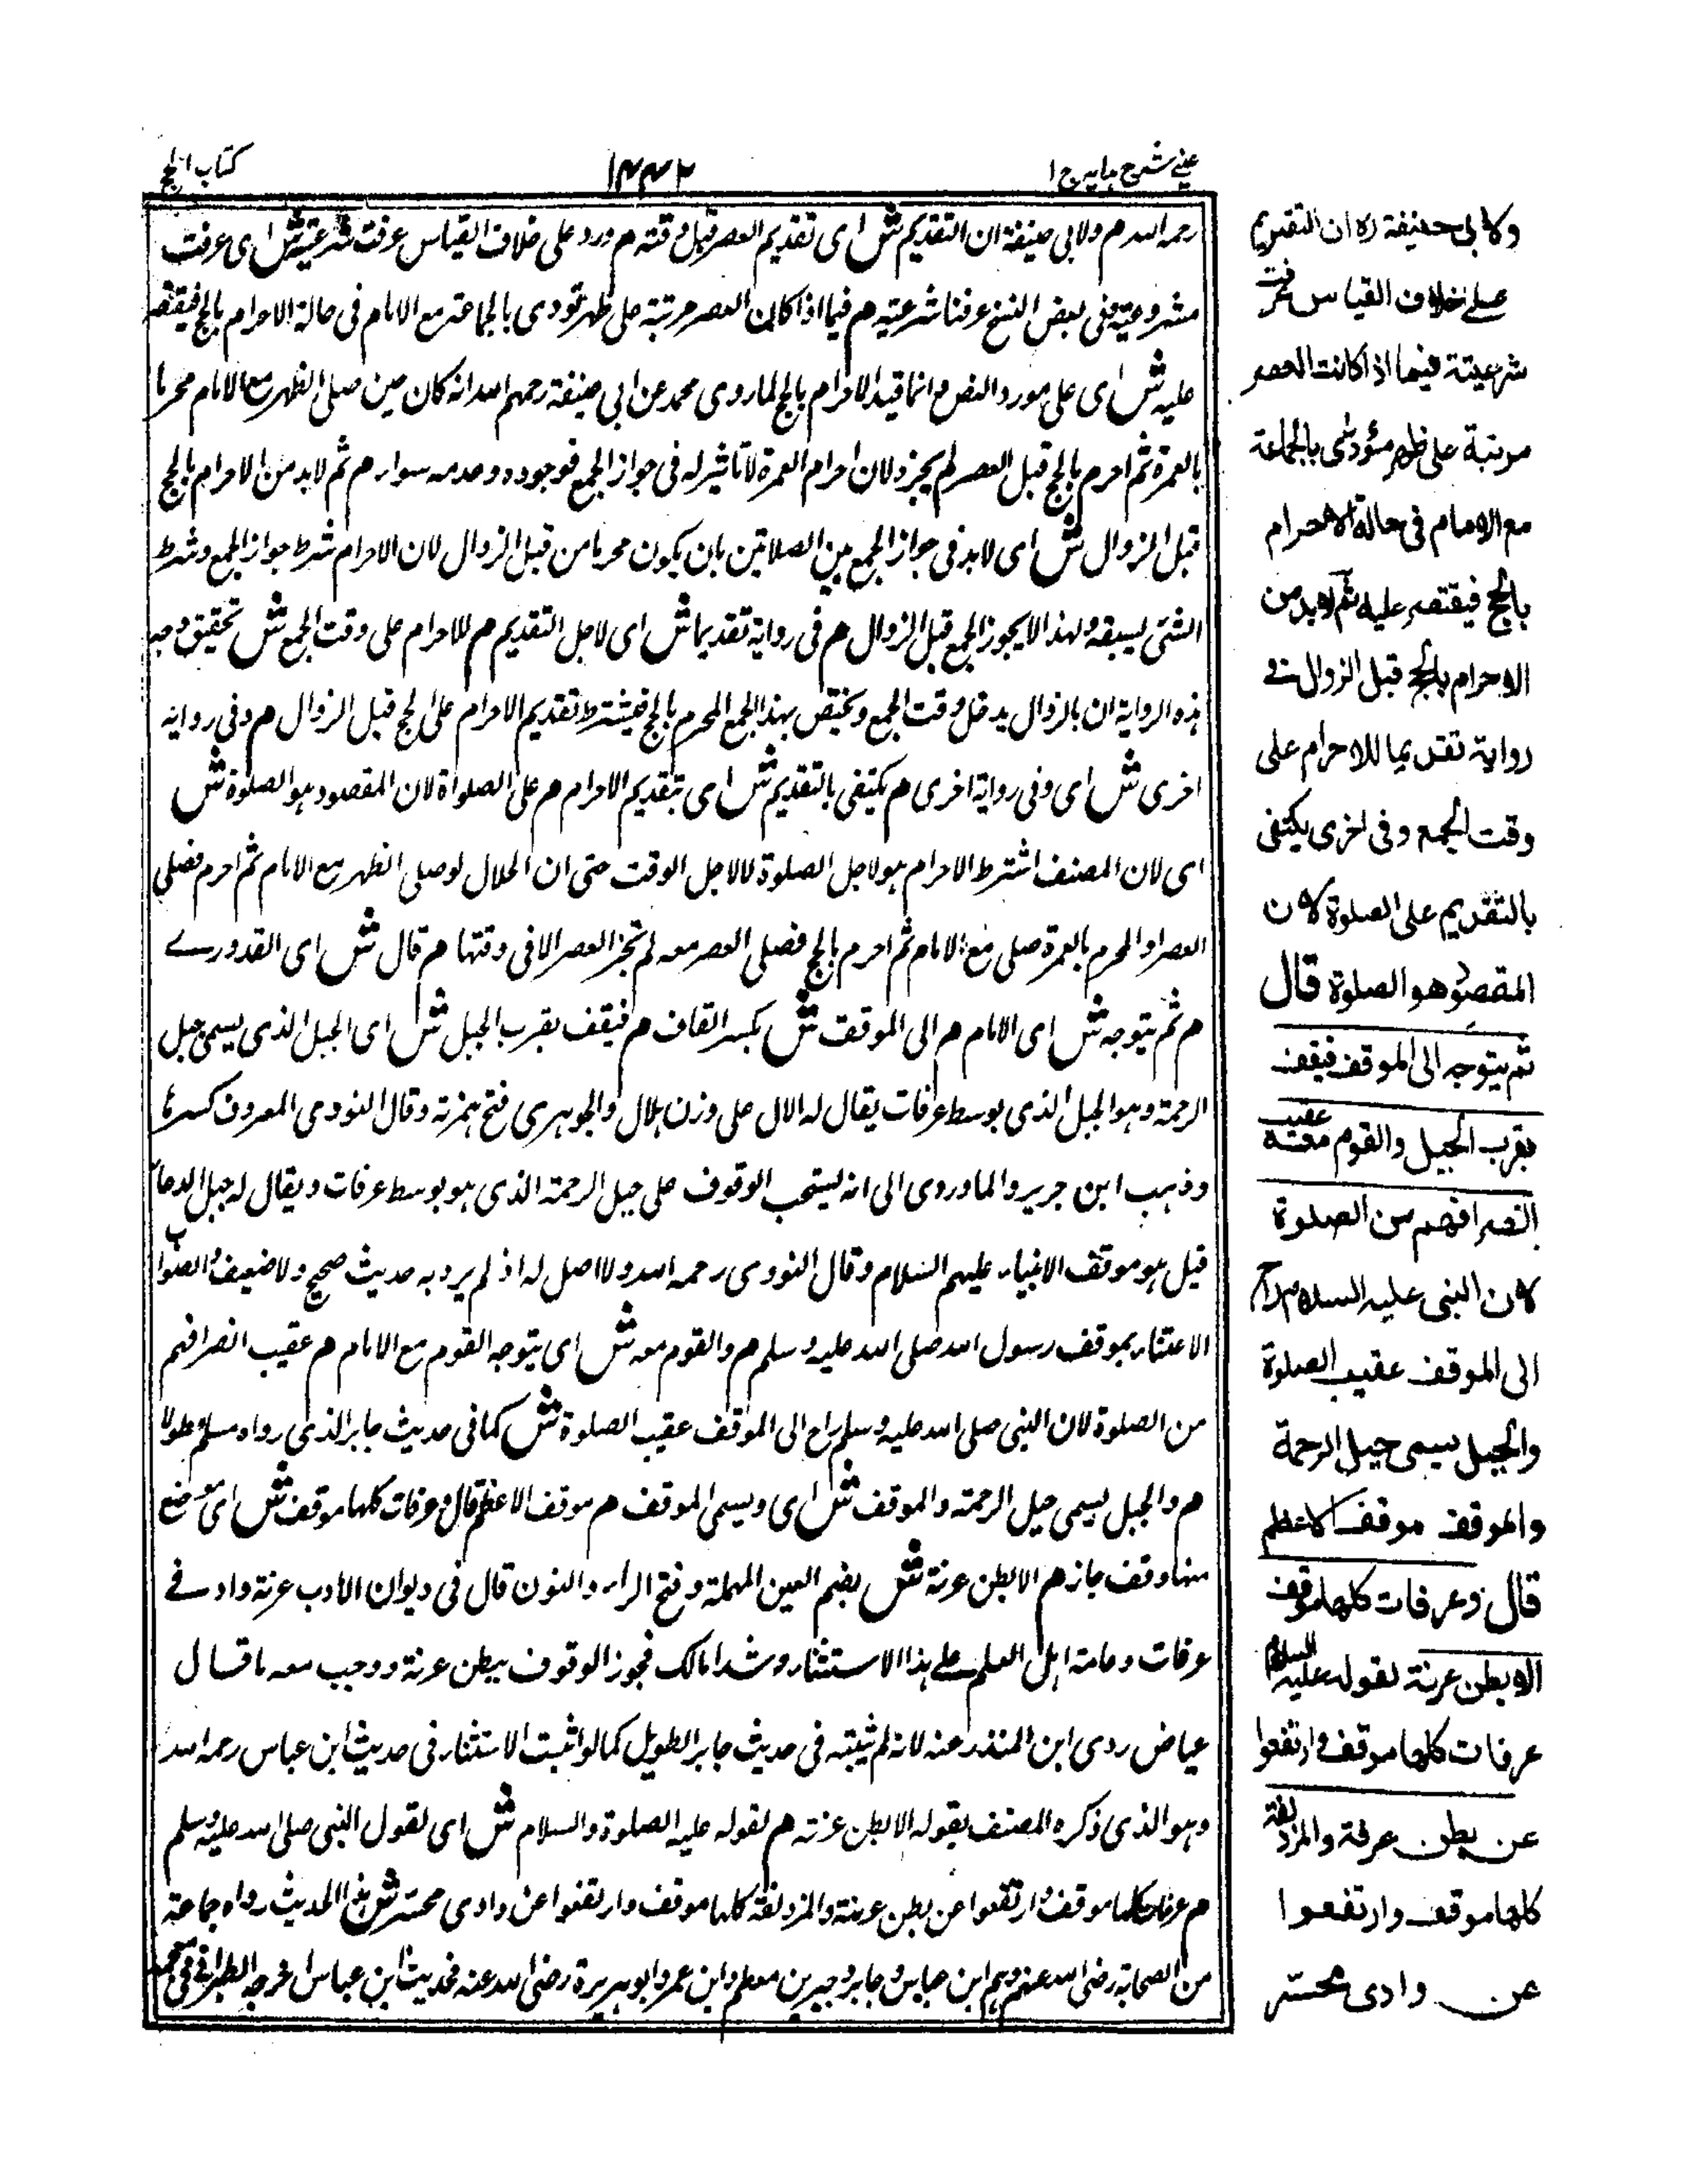 عيني شرح هدايه ج ١
١٤٤٢
كتاب الحج
رحمه الله م ولابي حنيفة ان التقديم ش اى تقديم العصر قبل وقته م ورد على خلاف القياس عرفت شرعيته ش اى عرفت
مشروعيته وفى بعض النسخ عرفنا شرعيته م فيما اذا كان العصر مرتبة على ظهر تودى بالجماعة مع الامام فى حالة الاحرام بالحج فيقتصر
عليه ش اى على مورد النص وانما قيد الاحرام بالحج لما روى محمد عن ابى حنيفة رحمهم الله انه كان حين صلى الظهر مع الامام محرما
بالعمرة ثم احرم بالحج قبل العصر لم يجزه لان احرام العمرة لا تاثير له فى جواز الجمع فوجوده وعدمه سواء م ثم لابد من الاحرام بالحج
قبل الزوال ش اى لابد فى جواز الجمع بين الصلاتين بان يكون محرما من قبل الزوال لان الاحرام شرط جواز الجمع وشرط
الشئ يسبقه ولهذا لا يجوز الجمع قبل الزوال م فى رواية تقديما ش اى لاجل التقديم م للاحرام على وقت الجمع ش تحقيق وجه
هذه الرواية ان بالزوال يدخل وقت الجمع ويختص بهذا الجمع المحرم بالحج فيشترط تقديم الاحرام على الحج قبل الزوال م وفى رواية
اخرى ش اى وفى رواية اخرى م يكتفى بالتقديم ش اى بتقديم الاحرام م على الصلواة لان المقصود هو الصلوة ش
اى لان المصنف اشترط الاحرام هو لاجل الصلوة لا لاجل الوقت حتى ان الحلال لو صلى الظهر مع الامام ثم احرم فصلى
العصر او المحرم بالعمرة صلى مع الامام ثم احرم بالحج فصلى العصر معه لم تجز العصر الا فى وقتها م قال ش اى القدورے
م ثم يتوجه ش اى الامام م الى الموقف ش بكسر القاف م فيقف بقرب الجبل ش اى الجبل الذى يسمى جبل
الرحمة وهو الجبل الذى بوسط عرفات يقال له الال على وزن هلال والجوهرى فتح همزته وقال النووى المعروف كسرها
وذهب ابن جرير والماوردى الى انه يستحب الوقوف على جبل الرحمة الذى هو بوسط عرفات ويقال له جبل الدعاء
قيل هو موقف الانبياء عليهم السلام وقال النووى رحمه الله ولا اصل له اذ لم يرد به حديث صحيح ولا ضعيف والصواب
الاعتناء بموقف رسول الله صلى الله عليه وسلم م والقوم معه ش اى يتوجه القوم مع الامام م عقيب انصرافهم
من الصلوة لان النبى صلى الله عليه وسلم راح الى الموقف عقيب الصلوة ش كما فى حديث جابر الذى رواه مسلم مطولا
م والجبل يسمى جبل الرحمة والموقف ش اى ويسمى الموقف م موقف الاعظم قال وعرفات كلها موقف ش اى موضع
منها وقف جاز م الا بطن عرنة ش بضم العين المهملة وفتح الراء والنون قال فى ديوان الادب عرنة واد فے
عرفات وعامة اهل العلم علے هذا الاستثناء وشذ مالك فجوز الوقوف ببطن عرنة ووجب معه ما قال
عياض روى ابن المنذر عنه لانه لم يثبته فى حديث جابر الطويل كما لو اثبت الاستثناء فى حديث ابن عباس رحمه الله
وهو الذى ذكره المصنف بقوله الا بطن عرنة م لقوله عليه الصلوة والسلام ش اى لقول النبى صلى الله عليه وسلم
م عرفات كلها موقف وارتفعوا عن بطن عرنة والمزدلفة كلها موقف وارتفعوا عن وادى محسر ش هذا الحديث رواه جماعة
من الصحابة رضى الله عنهم وهم ابن عباس وجابر وجبير بن مطعم وابن عمر وابو هريرة رضى الله عنه فحديث ابن عباس اخرجه الطبرانى فى معجمه
ولابى حنيفة ره ان التقديم
علے خلاف القياس عرفت
شرعيتة فيما اذا كانت العصر
مرتبة على ظهر مؤدى بالجماعة
مع الامام فى حالة الاحرام
بالحج فيقتصر عليه ثم لابد من
الاحرام بالحج قبل الزوال فے
رواية تقديما للاحرام على
وقت الجمع وفى اخرى يكتفى
بالتقديم على الصلوة لان
المقصود هو الصلوة قال
ثم يتوجه الى الموقف فيقف
بقرب الجبل والقوم معه عقيب
انصرافهم من الصلوة
لان النبى عليه السلام راح
الى الموقف عقيب الصلوة
والجبل يسمى جبل الرحمة
والموقف موقف الاعظم
قال وعرفات كلها موقف
الا بطن عرنة لقوله عليه السلام
عرفات كلها موقف وارتفعوا
عن بطن عرفة والمزدلفة
كلها موقف وارتفعوا
عن وادى محسّر